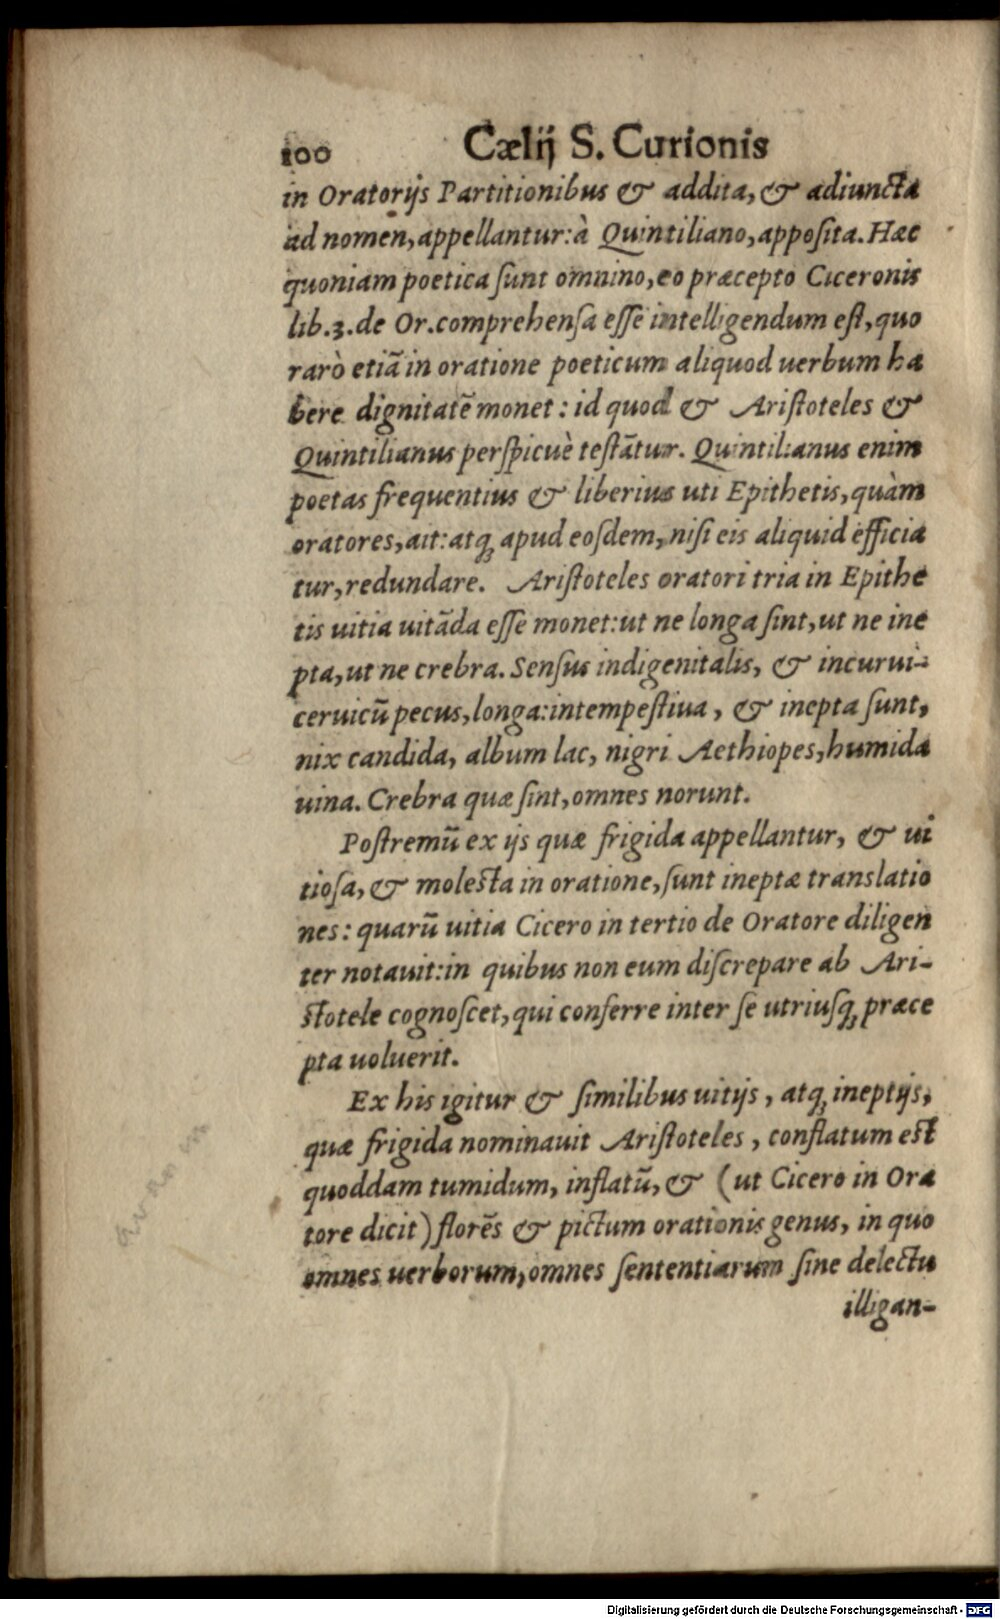 100 Cælij S. Curionis
in Oratorijs Partitionibus & addita, & adiuncta
ad nomen, appellantur: à Quintiliano, apposita. Hæc
quoniam poetica sunt omnino, eo præcepto Ciceronis
lib. 3. de Or. comprehensa esse intelligendum est, quo
rarò etiã in oratione poeticum aliquod uerbum ha
bere dignitatẽ monet: id quod & Aristoteles &
Quintilianus perspicuè testãtur. Quintilianus enim
poetas frequentius & liberius uti Epithetis, quàm
oratores, ait: atq; apud eosdem, nisi eis aliquid efficia
tur, redundare. Aristoteles oratori tria in Epithe
tis uitia uitãda esse monet: ut ne longa sint, ut ne ine
pta, ut ne crebra. Sensus indigenitalis, & incurui-
ceruicũ pecus, longa: intempestiua, & inepta sunt,
nix candida, album lac, nigri Aethiopes, humida
uina. Crebra quæ sint, omnes norunt.
Postremũ ex ijs quæ frigida appellantur, & ui
tiosa, & molesta in oratione, sunt ineptæ translatio
nes: quarũ uitia Cicero in tertio de Oratore diligen
ter notauit: in quibus non eum discrepare ab Ari-
stotele cognoscet, qui conferre inter se utriusq; præce
pta uoluerit.
Ex his igitur & similibus uitijs, atq; ineptijs,
quæ frigida nominauit Aristoteles, conflatum est
quoddam tumidum, inflatũ, & (ut Cicero in Ora
tore dicit) florẽs & pictum orationis genus, in quo
omnes uerborum, omnes sententiarum sine delectu
illigan-
Digitalisierung gefördert durch die Deutsche Forschungsgemeinschaft - DFG